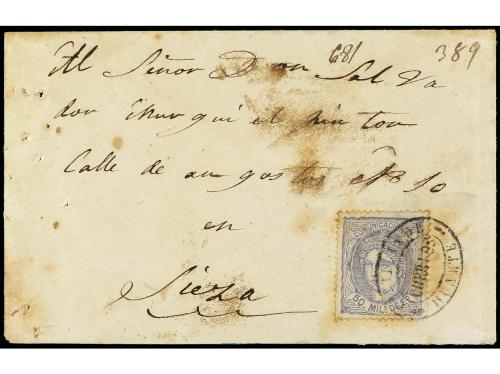 681 389
Al Señor Don Sal Va
dor Churgui el pin tor
Calle de an gos tos Nº 10
en
Sieza
COMUNICACIONES
50 MILS DE Eº